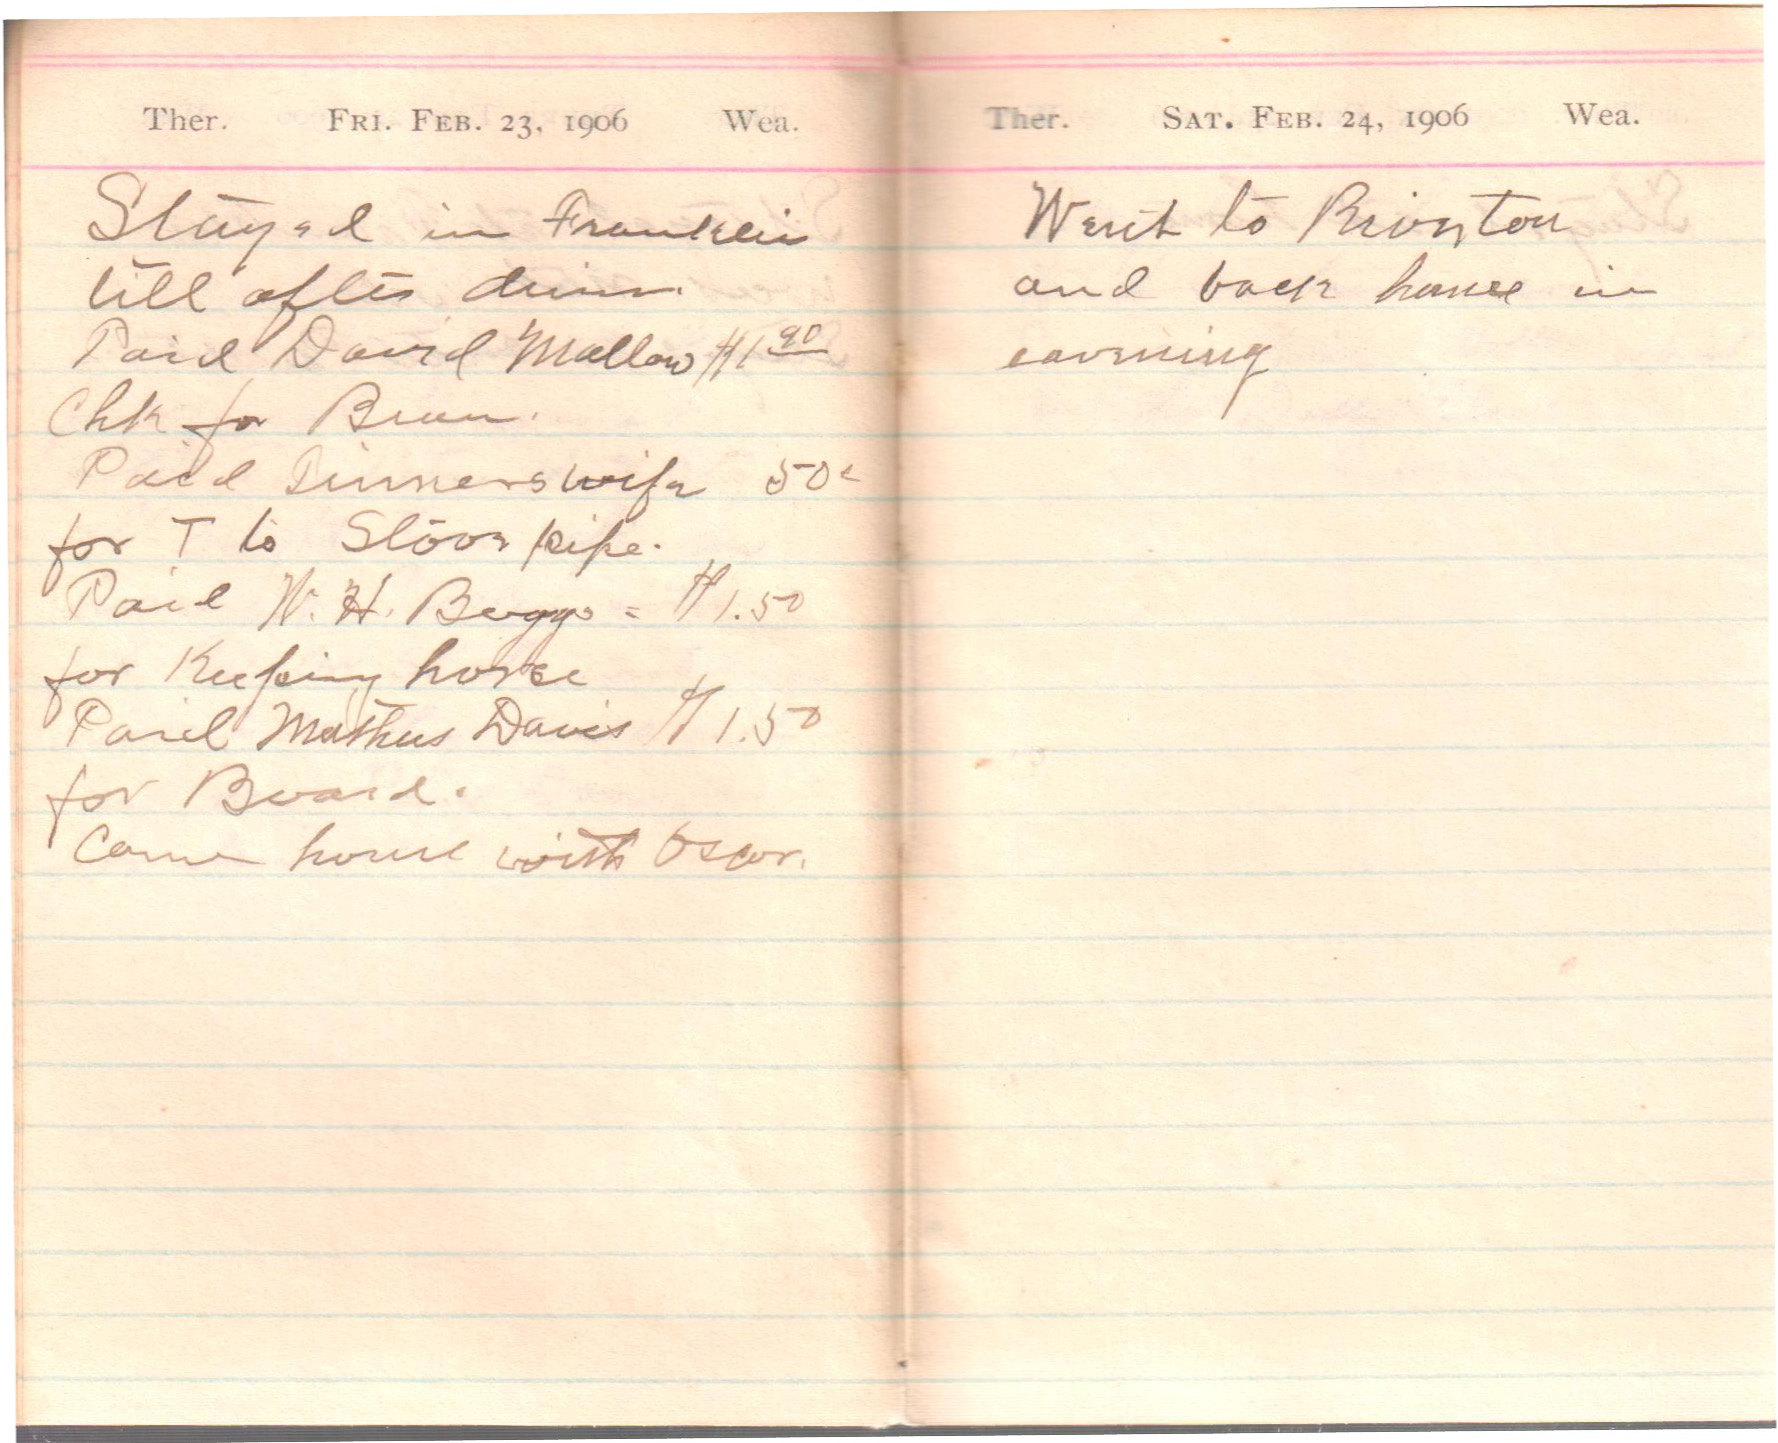 Ther. FRI. FEB. 23, 1906 Wea.
Stayed in Franklin
till after dinner.
Paid David Mallow $1 90
Chk for Bran.
Paid wife 50c
for T to Stove pipe.
Paid W. H. Boggs = $1.50
for Keeping horse
Paid Mathus Davis $1.50
for Board.
Came home with Oscar.
Ther. SAT. FEB. 24, 1906 Wea.
Went to
and back home in
eavening